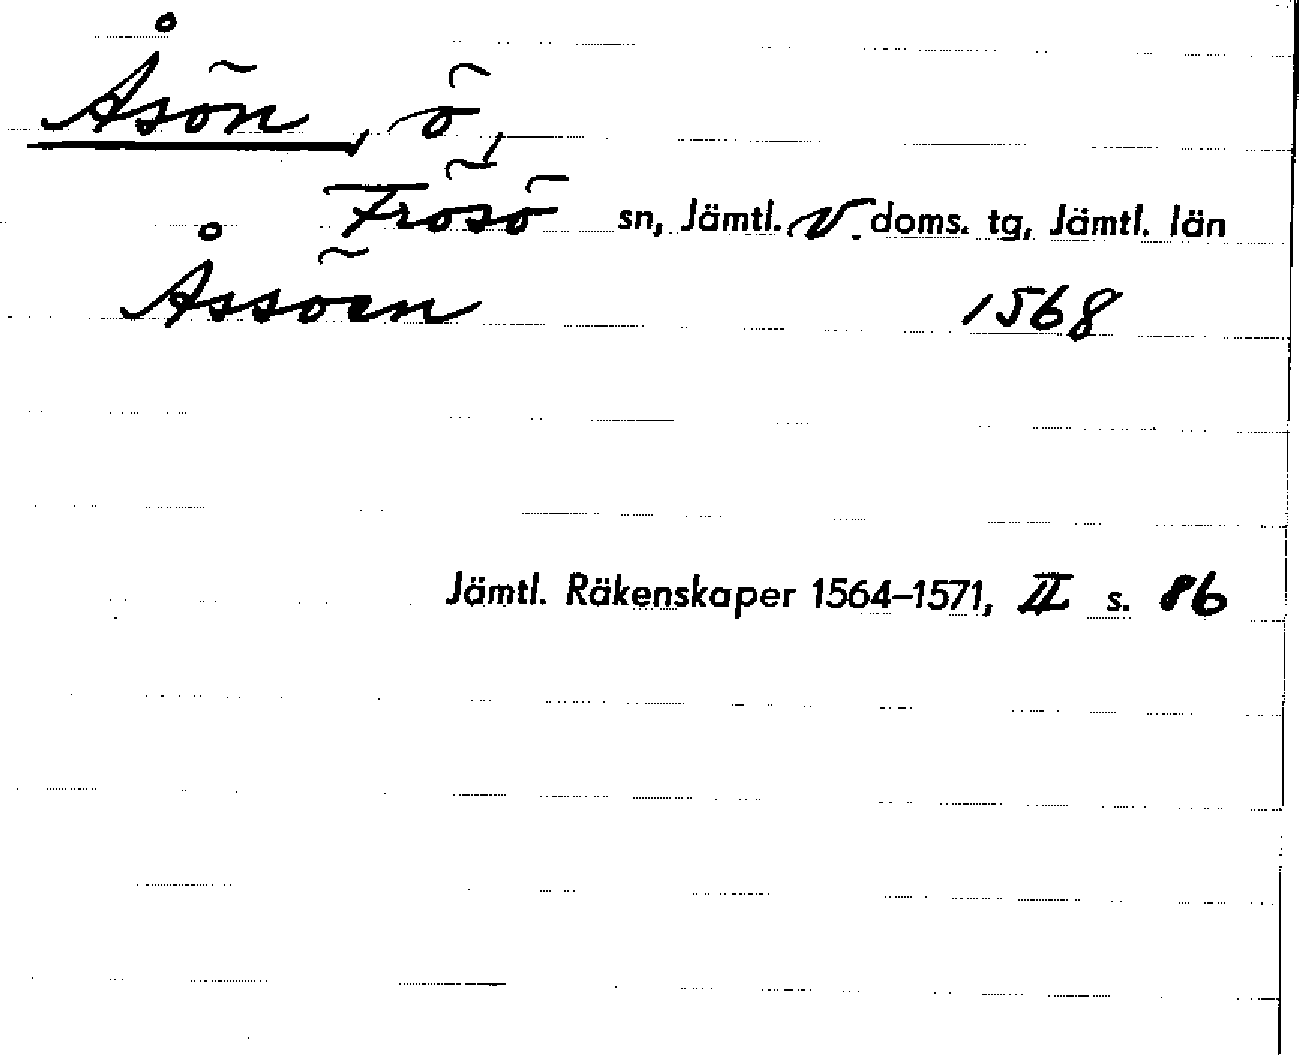 Åsön, ö,
Frösö sn, Jämtl. V. doms. tg, Jämtl. län
Åssöen 1568
Jämtl. Räkenskaper 1564–1571, II s. 86